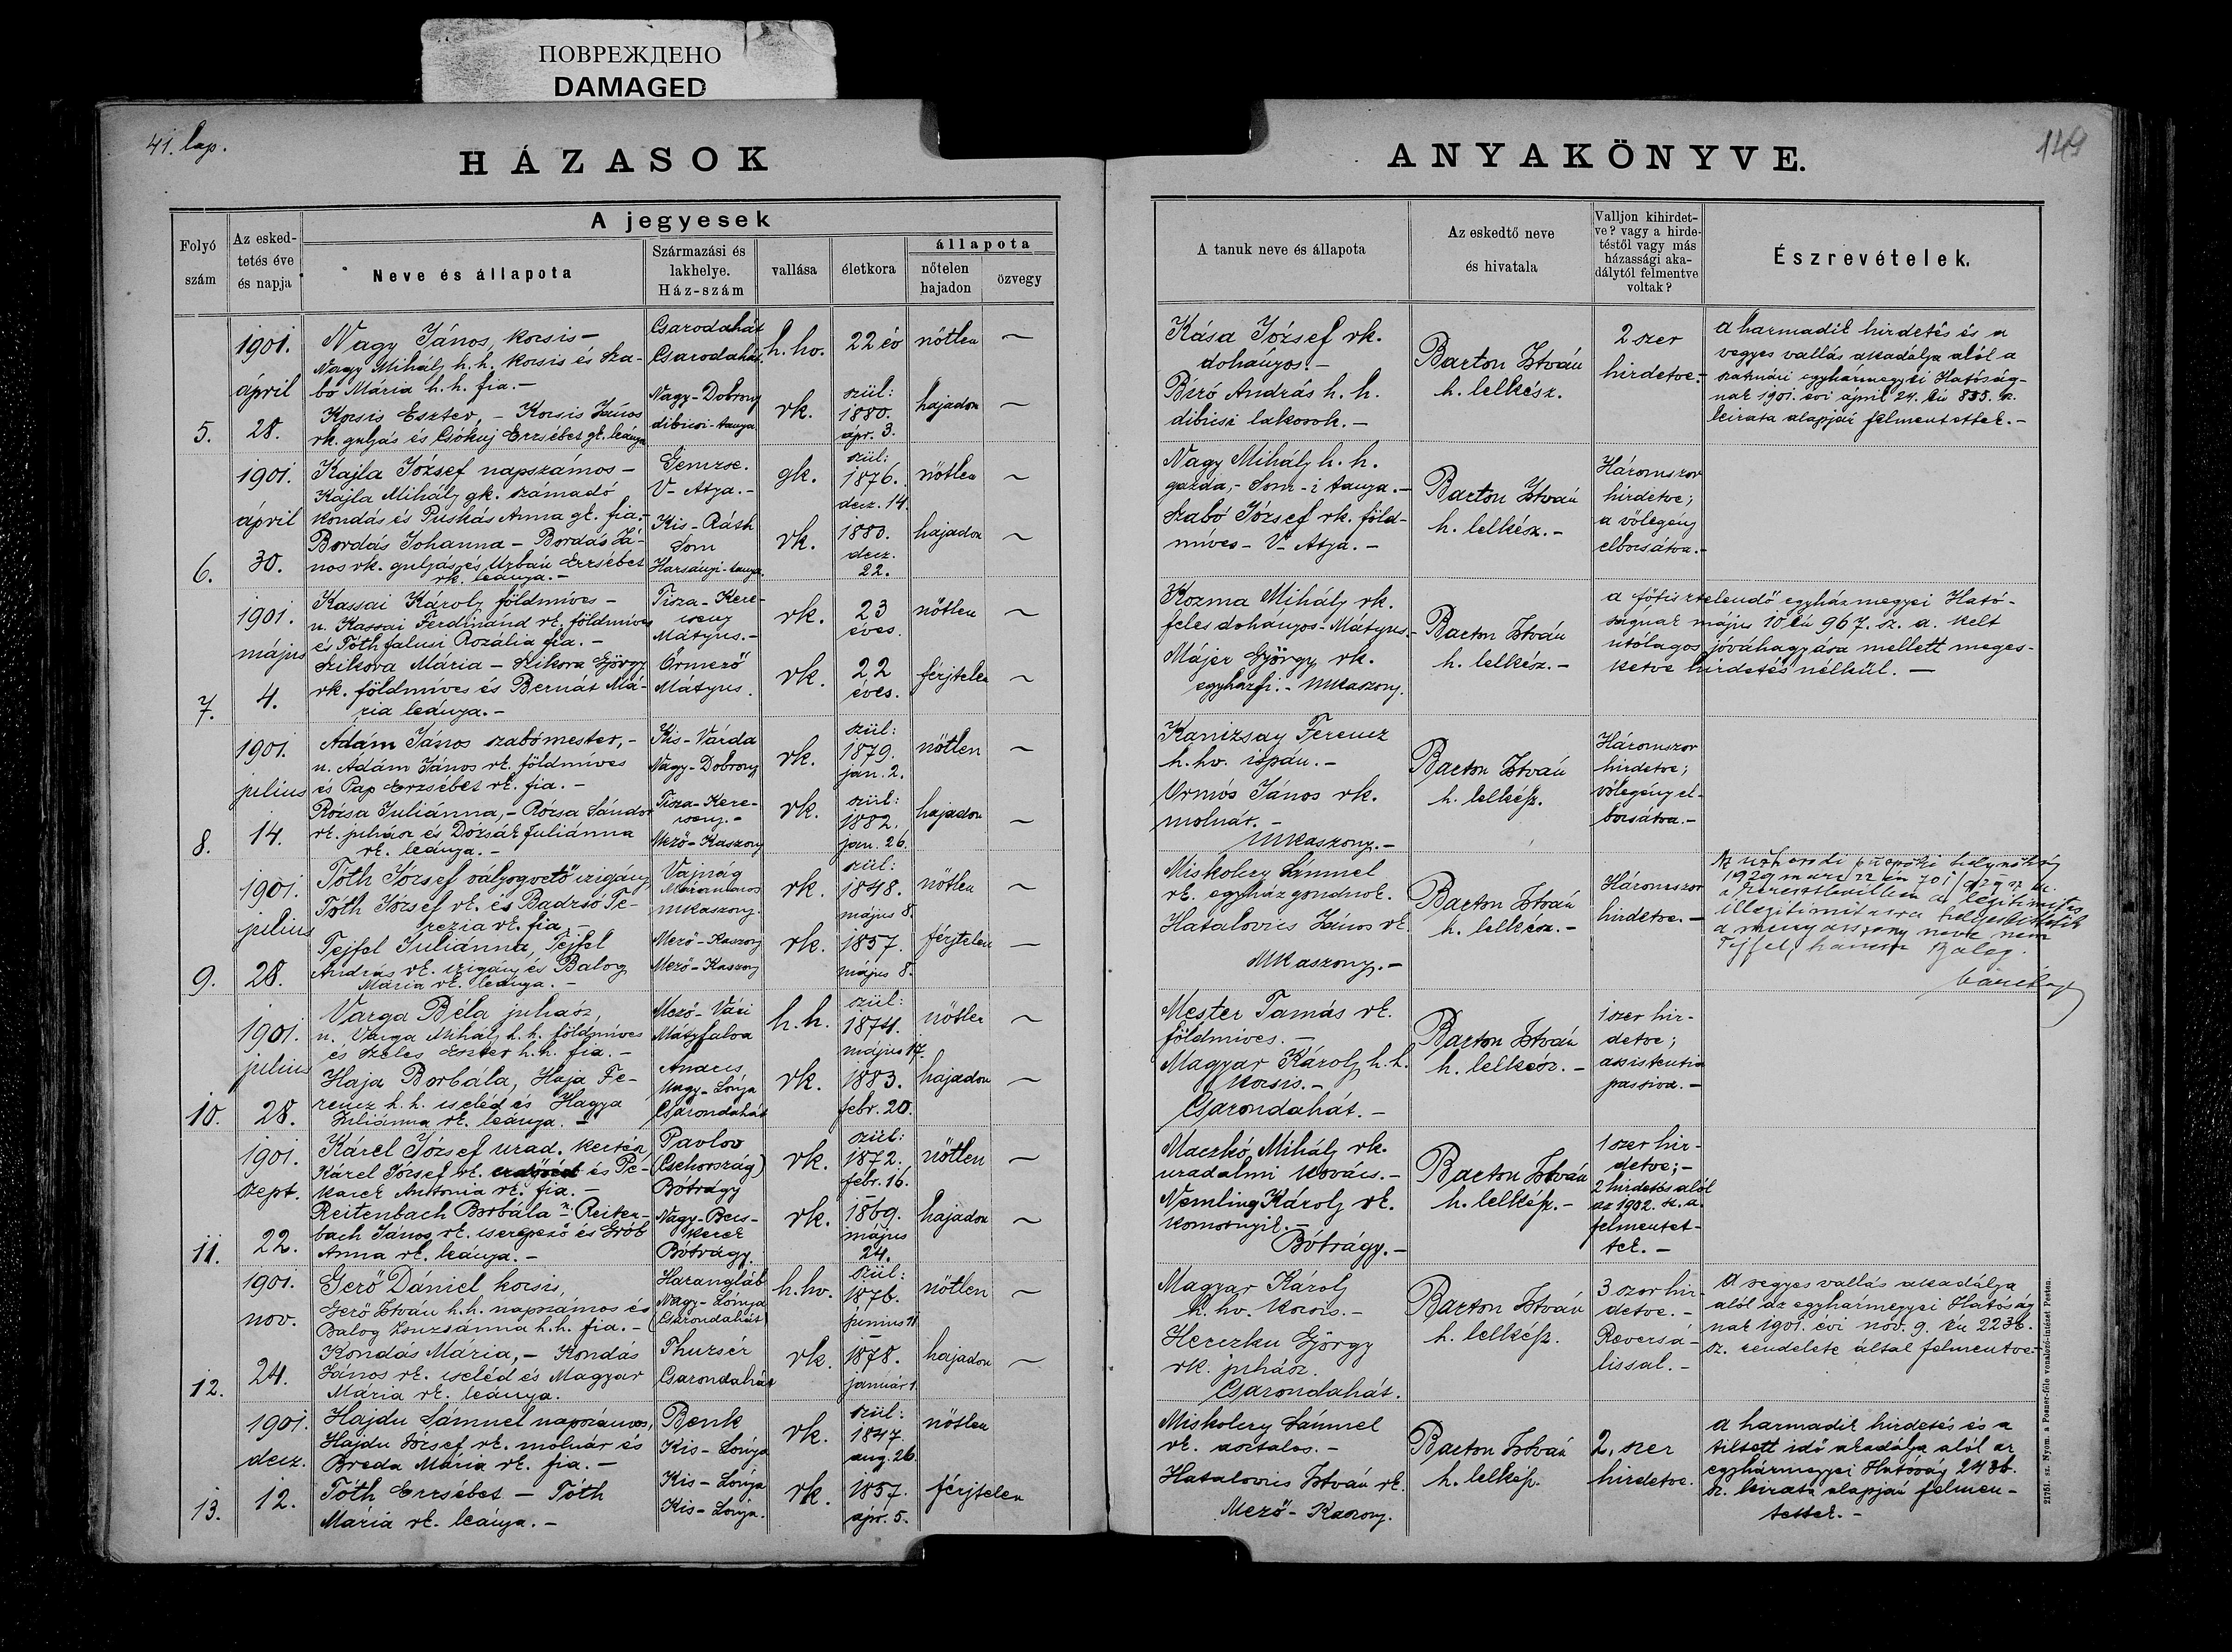 ПОВРЕЖДЕНО
DAMAGED
41. lap.
HÁZASOK
Folyó
szám
Az esked-
tetés éve
és napja
A jegyesek
Neve és állapota
Származási és
lakhelye.
Ház-szám
vallása
életkora
állapota
nőtelen
hajadon
özvegy
5.
1901.
ápril
28.
Nagy János, kocsis -
Nagy Mihály h. h. kocsis és Sza-
bó Mária h. h. fia. -
Kocsis Eszter, - Kocsis János
rk. gulyás és Csókuj Erzsébet gk. leánya
Csarodahát
Csarodahát
Nagy-Dobrony
dibicsi-tanya
h. hv.
rk.
22 év
szül:
1880.
ápr. 3.
nőtlen
hajadon
6.
1901.
ápril
30.
Kajla József napszámos -
Kajla Mihály gk. számadó
kondás és Puskás Anna gk. fia. -
Bordás Johanna - Bordás Já-
nos rk. gulyás és Urban Erzsébet
rk. leánya. -
Gemzse.
V- Atya. -
Kis-Ráth
Som
Harsányi-tanya.
gk.
rk.
szül:
1876.
decz. 14.
1880.
decz.
22.
nőtlen
hajadon
7.
1901.
május
4.
Kassai Károly földmives -
n. Kassai Ferdinánd rk. földmives
és Tóthfalusi Rozália fia. -
Szikora Mária - Szikora György
rk. földmíves és Bernát Má-
ria leánya. -
Tisza-Kere-
cseny
Mátyus. -
Őrmező
Mátyus.
rk.
rk.
23
éves.
22
éves.
nőtlen
férjtelen
8.
1901.
julius
14.
Ádám János szabómester, -
n. Ádám János rk. földmives
és Pap Erzsébet rk. fia. -
Rózsa Juliánna, - Rózsa Sándor
rk. juhász és Dozsák Juliánna
rk. leánya. -
Kis-Várda
Nagy-Dobrony
Tisza-Kere-
cseny. -
Mező-Kaszony
rk.
rk.
szül:
1879.
jan. 2.
szül:
1882.
jan. 26.
nőtlen
hajadon
9.
1901.
julius
28.
Tóth József vályogvető czigány
Tóth József rk. és Badzsó Te-
rezia rk. fia -
Tejfel Juliánna, Tejfel
András rk. czigány és Balog
Mária rk. leánya. -
Vajnág
Máramaros
MKaszony.
Mező-Kaszony
Mező-Kaszony
rk.
rk.
szül:
1848.
május 8.
1857.
május 8.
nőtlen
férjtelen
10.
1901.
julius
28.
Varga Béla juhász,
n. Varga Mihály h. h. földmives
és Szeles Eszter h. h. fia. -
Haja Borbála, Haja Fe-
rencz h. h. cseléd és Hagya
Juliánna rk. leánya. -
Mező-Vári
Mátyfalva
Anarcs
Nagy-Lónya
Csarondahát
h. h.
rk.
szül:
1874.
május 17.
1883.
febr. 20.
nőtlen
hajadon
11.
1901.
szept.
22.
Kárel József urad. kertész,
Kárel József rk. és Pe-
karek Antonia rk. fia. -
Reitenbach Borbála - Reiten-
bach János rk. cserepező és Grób
Anna rk. leánya. -
Pavlov
(Csehország)
Bótrágy
Nagy-Becs-
kerek
Bótrágy.
rk.
rk.
szül:
1872.
febr. 16.
1869.
május
24.
nőtlen
hajadon
12.
1901.
nov.
24.
Gerő Dániel kocsis,
Gerő István h. h. napszámos és
Balog Zsuzsánna h. h. fia. -
Kondás Mária, - Kondás
János rk. cseléd és Magyar
Mária rk. leánya.
Harangláb
Nagy-Lónya
(Csarondahát)
Thuzsér
Csarondahát
h. hv.
rk.
szül:
1876.
június 11
1878.
január 1.
nőtlen
hajadon
13.
1901.
decz.
12.
Hajdu Sámuel napszámos,
Hajdu József rk. molnár és
Breda Mária rk. fia. -
Tóth Erzsébet - Tóth
Mária rk. leánya. -
Benk
Kis-Lónya
Kis-Lónya
Kis-Lónya.
rk.
rk.
szül:
1847.
aug. 26.
1857.
ápr. 5.
nőtlen
férjtelen
ANYAKÖNYVE.
A tanuk neve és állapota
Az eskedtő neve
és hivatala
Valljon kihirdet-
ve? vagy a hirde-
téstől vagy más
házassági aka-
dálytól felmentve
voltak?
Észrevételek.
Kása József rk.
dohányos. -
Biró András h. h.
dibicsi lakosok. -
Barton István
h. lelkész.
2 szer
hirdetve. -
A harmadik hirdetés és a
vegyes vallás akadálya alól a
szatmári egyházmegyei Hatóság-
nak 1901. évi ápril 24. én 835. sz.
leirata alapján felmentettek. -
Nagy Mihály h. h.
gazda, - Som-i tanya. -
Szabó József rk. föld-
míves - V- Atya. -
Barton István
h. lelkész. -
Háromszor
hirdetve;
a vőlegény
elbocsátva. -
Kozma Mihály rk.
feles dohányos - Mátyus. -
Májer György rk.
egyházfi. - MKaszony.
Barton István
h. lelkész. -
a főtisztelendő egyházmegyei Ható-
ságnak május 10 én 967. sz. a. kelt
utólagos jóváhagyása mellett meges-
ketve hirdetés nélkül. -
Kanizsay Ferencz
h. hv. ispán. -
Ormós János rk.
molnár. -
MKaszony. -
Barton István
h. lelkész.
Háromszor
hirdetve;
vőlegény el-
bocsátva. -
Miskolczy Sámuel
rk. egyházgondnok.
Hatalovics János rk.
MKaszony. -
Barton István
h. lelkész. -
Háromszor
hirdetve. -
illegitimitásra
a menyasszony neve nem
Tejfel, hanem Balog.
Mester Tamás rk.
földmives. -
Magyar Károly h. h.
kocsis. -
Csarondahát. -
Barton István
h. lelkész. -
1 szer hir-
detve;
assistentia
passiva. -
Maczkó Mihály rk.
uradalmi kovács. -
Nemling Károly rk.
komornyik. -
Bótrágy. -
Barton István
h. lelkész. -
1 szer hir-
detve; -
2 hirdetés alól
az 1902. sz. a.
felmentet-
tek. -
Magyar Károly
h. hv. kocsis. -
Herczku György
rk. juhász.
Csarondahát.
Barton István
h. lelkész.
3 szor hir-
detve. -
Reversá-
lissal. -
A vegyes vallás akadálya
alól az egyházmegyei Hatóság
nak 1901. évi nov. 9. én 2236.
sz. rendelete által felmentve. -
Miskolczy Sámuel
rk. asztalos. -
Hatalovics István rk.
Mező-Kaszony.
Barton István
h. lelkész.
2. szer
hirdetve.
A harmadik hirdetés és a
tiltott idő akadálya alól az
egyházmegyei Hatóság 2436.
sz. leirata alapján felmen-
tettek. -
21751. sz. Nyom. a Posner-féle vonalzó-intézet Pesten.